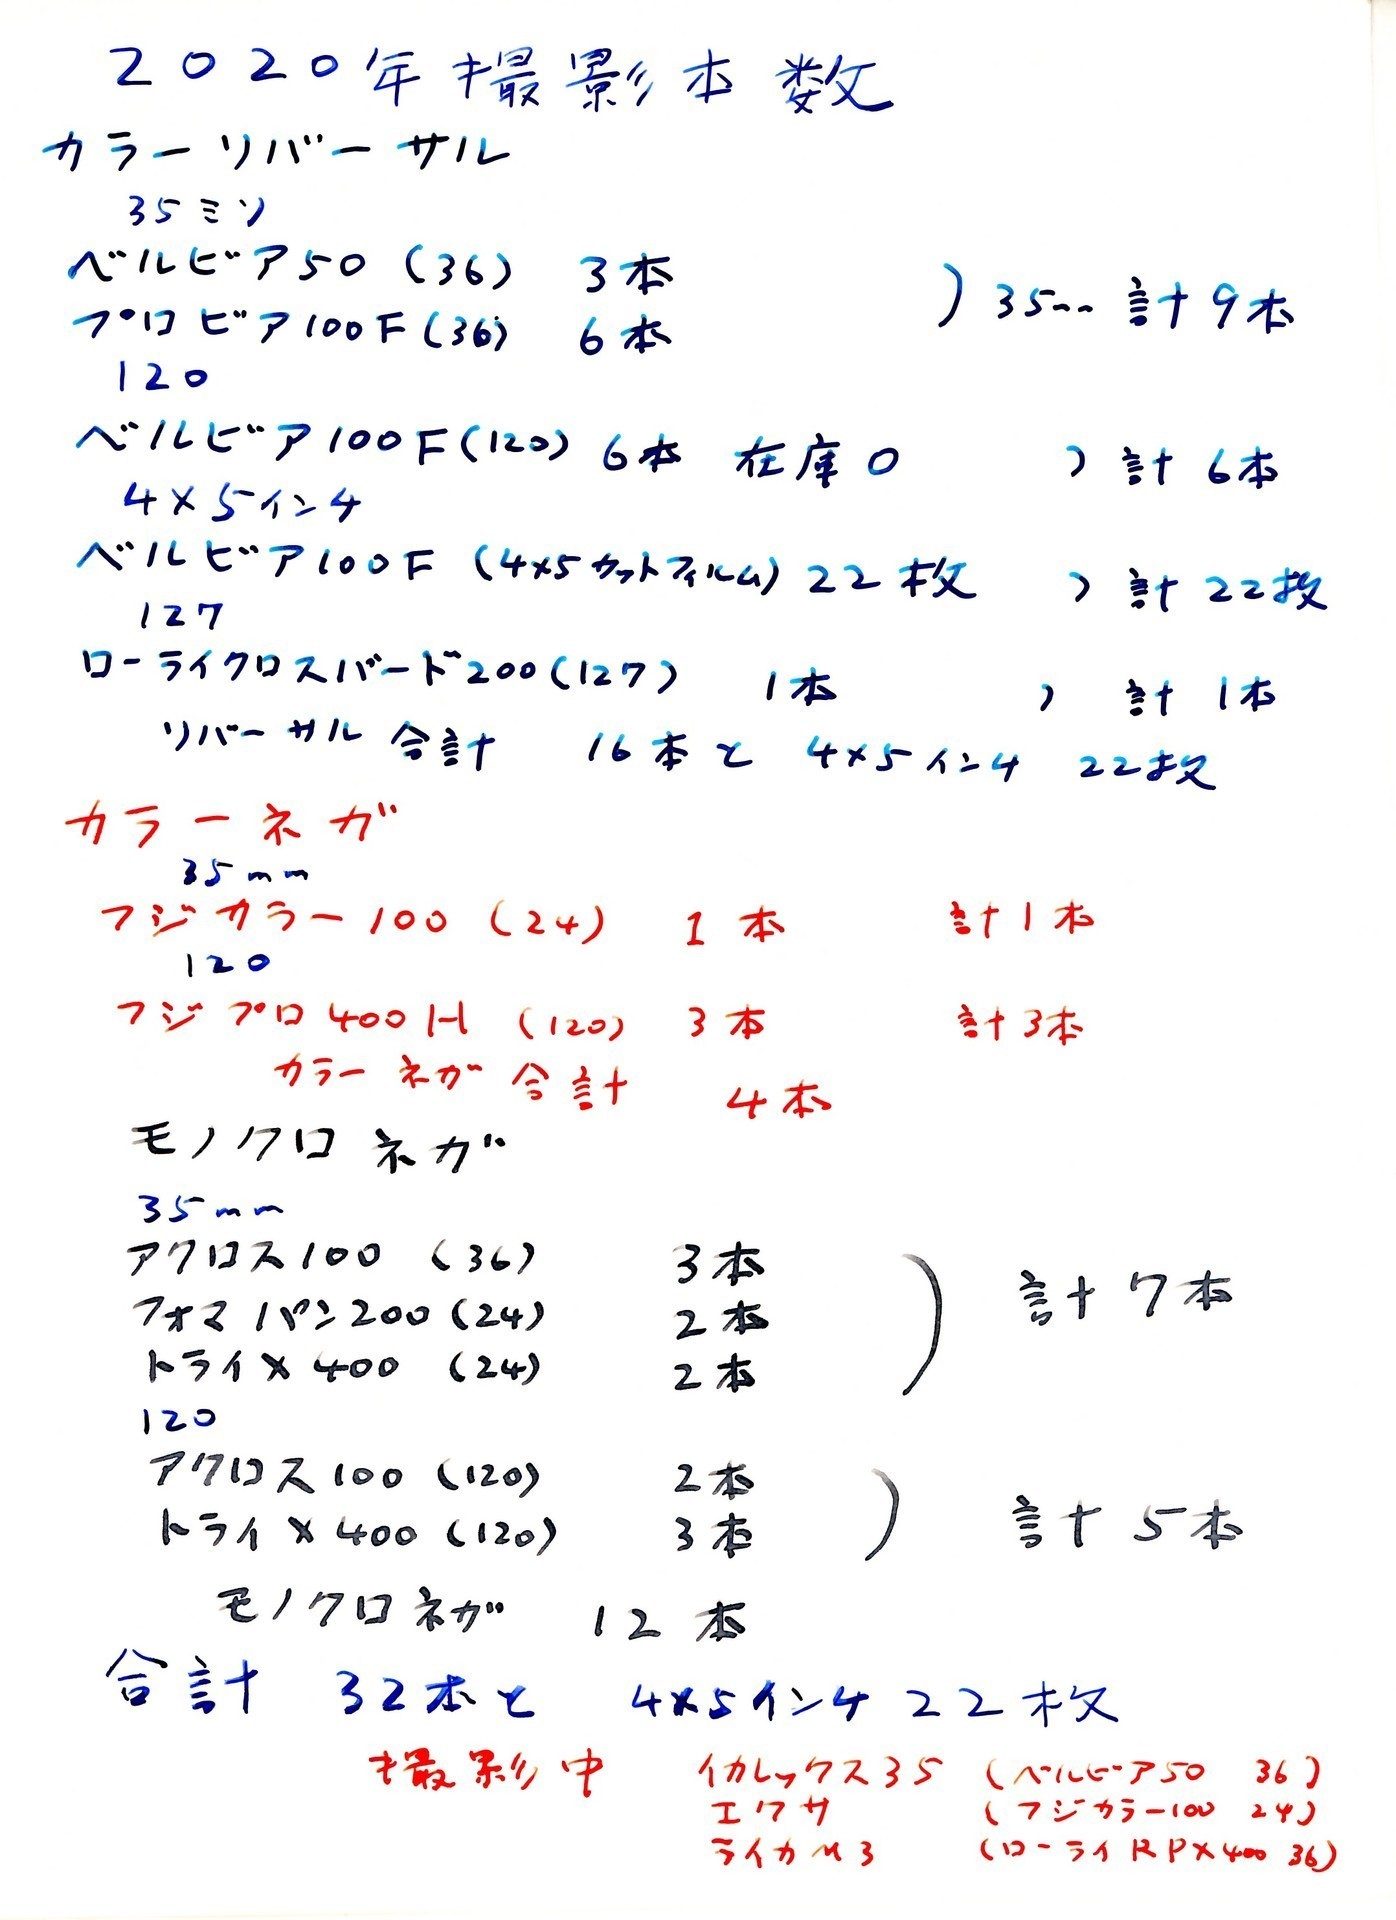 2020年撮影本数
カラーリバーサル
35ミリ
ベルビア50(36) 3本
プロビア100F(36) 6本 ) 35mm 計9本
120
ベルビア100F(120) 6本 在庫0 ) 計6本
4×5インチ
ベルビア100F (4×5カットフィルム) 22枚 ) 計22枚
127
ローライクロスバード200(127) 1本 ) 計1本
リバーサル合計 16本と 4×5インチ 22枚
カラーネガ
35mm
フジカラー100 (24) 1本 計1本
120
フジプロ400H (120) 3本 計3本
カラーネガ合計 4本
モノクロネガ
35mm
アクロス100 (36) 3本
フォマパン200(24) 2本 ) 計7本
トライX400 (24) 2本
120
アクロス100(120) 2本
トライX400(120) 3本 ) 計5本
モノクロネガ 12本
合計 32本と 4×5インチ22枚
撮影中 イカレックス35 (ベルビア50 36)
エクサ (フジカラー100 24)
ライカM3 (ローライRPX400 36)